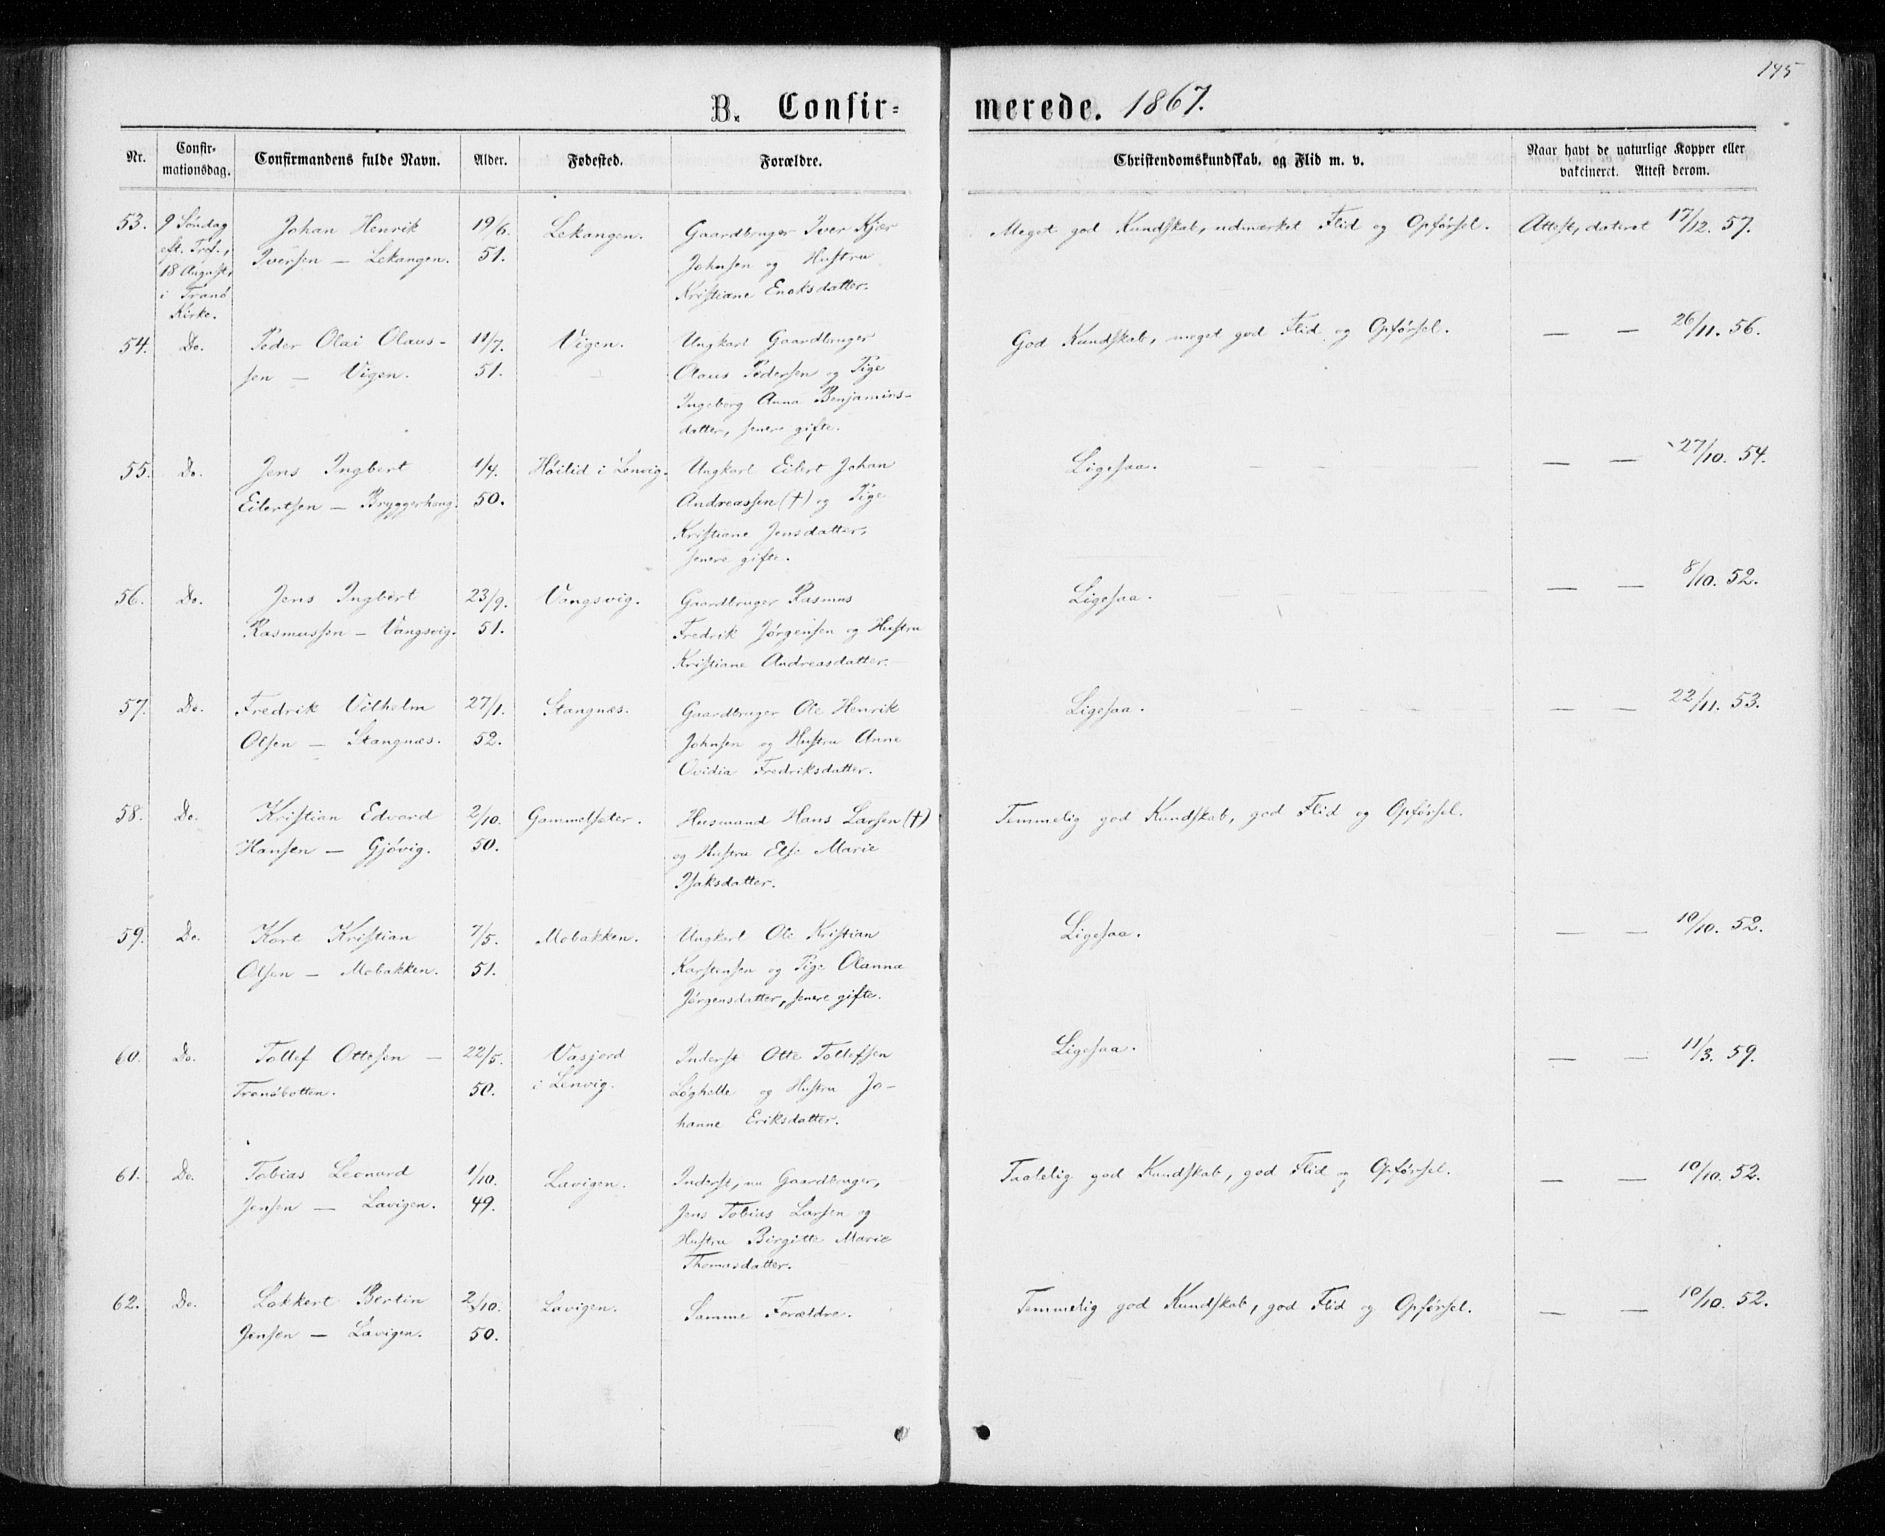 195
B. Confir= merede. 1867.
Nr. Confir-mationsdag. Confirmandens fulde Navn. Alder. Fødested. Forældre. Christendomskundskab. og Flid m. v. Naar havt de naturlige Kopper eller vakcineret. Attest derom.
53. 9 Søndag Johan Henrik 19/6. Lekangen. Gaardbruger Iver Kjær Meget god Kundskab, udmærket Flid og Opførsel. Attest, dateret 17/12. 57.
eft. Tref., Iversen — Lekangen. 51. Johnsen og Hustru
18 August, Kristiane Enoksdatter.
i Tranø
Kirke.
54. Do. Peder Olai Olaus- 11/7. Vigen. Ungkarl Gaardbruger God Kundskab, meget god Flid og Opførsel. — — 26/11. 56.
sen — Vigen. 51. Olaus Pedersen og Pige
Ingeborg Anna Benjamins-
datter, senere gifte.
55. Do. Jens Ingbert 1/4. Høilid i Lenvig. Ungkarl Eilert Johan Ligesaa. — — 27/10. 54.
Eilertsen — Bryggerhaug. 50. Andreassen (†) og Pige
Kristiane Jensdatter,
senere gifte.
56. Do. Jens Ingbert 23/9. Vangsvig. Gaardbruger Rasmus Ligesaa. — — 8/10. 52.
Rasmussen — Vangsvig. 51. Fredrik Jørgensen og Hustru
Kristiane Andreasdatter.
57. Do. Fredrik Vilhelm 27/1. Stangnæs. Gaardbruger Ole Henrik Ligesaa. — — 22/11. 53.
Olsen — Stangnæs. 52. Johnsen og Hustru Anne
Ovidia Fredriksdatter.
58. Do. Kristian Edvard 2/10. Gammelsæter. Husmand Hans Larsen (†) Temmelig god Kundskab, god Flid og Opførsel.
Hansen — Gjøvig. 50. og Hustru Else Marie
Isaksdatter.
59. Do. Kort Kristian 7/5. Mobakken. Ungkarl Ole Kristian Ligesaa. — — 10/10. 52.
Olsen — Mobakken. 51. Karstensen og Pige Olanna
Jørgensdatter, senere gifte.
60. Do. Tollef Ottesen — 22/5. Vasjord Inderst Otte Tollefsen Ligesaa. — — 11/3. 59.
Tranøbotten. 50. i Lenvig. Løghelle og Hustru Jo-
hanne Eriksdatter.
61. Do. Tobias Leonard 1/10. Lavigen. Inderst, nu Gaardbruger, Taalelig god Kundskab, god Flid og Opførsel. — — 10/10. 52.
Jensen — Lavigen. 49. Jens Tobias Larsen og
Hustru Birgitte Marie
Thomasdatter.
62. Do. Lokkert Bertin 2/10. Lavigen. Samme Forældre. Temmelig god Kundskab, god Flid og Opførsel. — — 10/10. 52.
Jensen — Lavigen. 50.